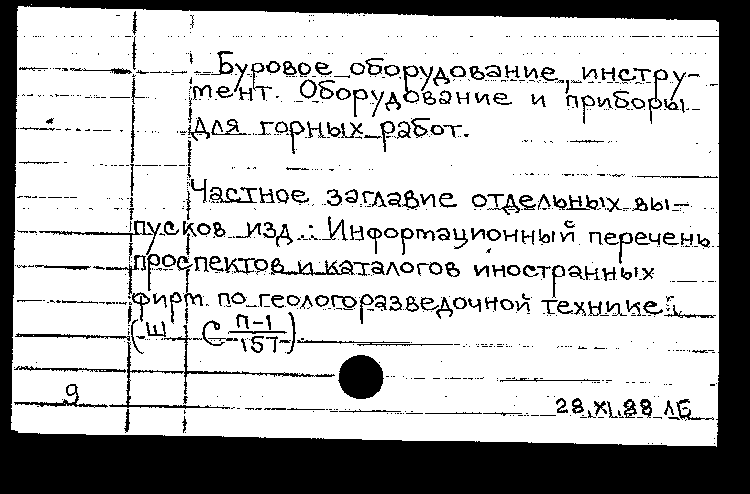 Буровое оборудование, инстру-
мент. Оборудование и приборы
для горных работ.
Частное заглавие отдельных вы-
пусков изд.: Информационный перечень
проспектов и каталогов иностранных
фирм по геологоразведочной технике
(Ш С П-1/157)
9
28.XI.88 ЛБ